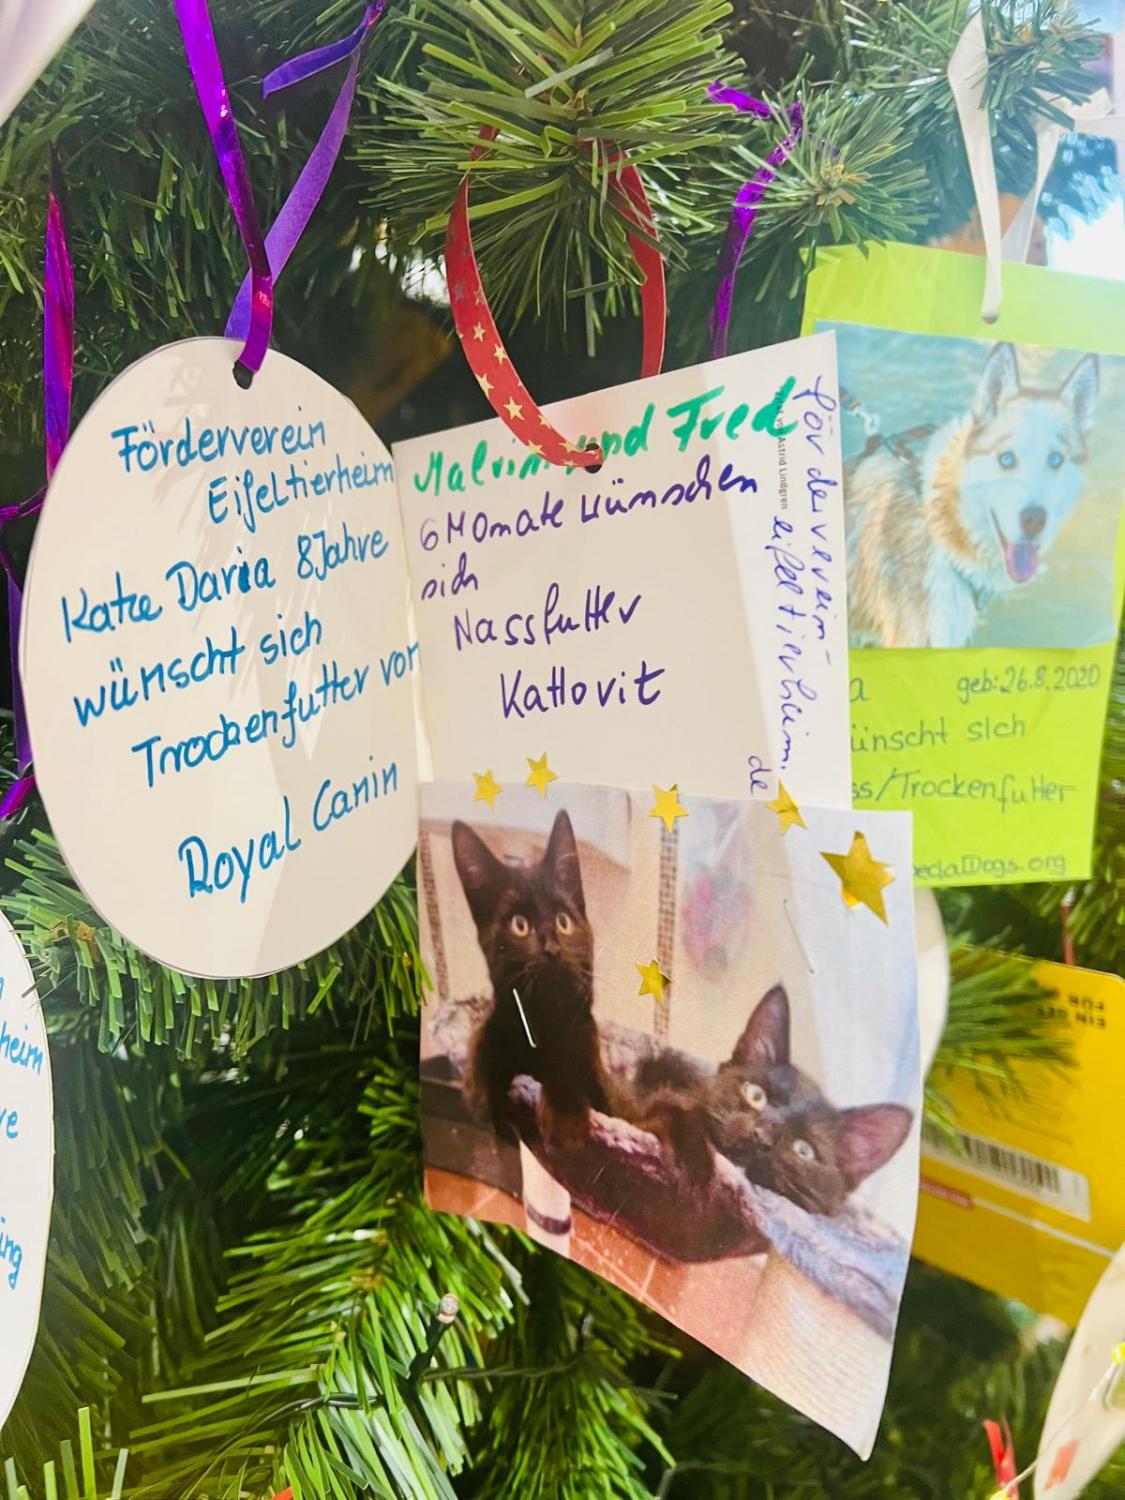 Förderverein
Eifeltierheim
Katze Daria 8Jahre
wünscht sich
Trrockenfutter von
Royal Canin
und Fred
6 Monate wünschen
sich
Nassfutter
Kattovit
förderverein-
eifeltierheim.
de
Astrid Lindgren
geb:26.8.2020
ünscht sich
ss/Trockenfutter
ecialDogs.org
EIN GES
FÜR
heim
ing